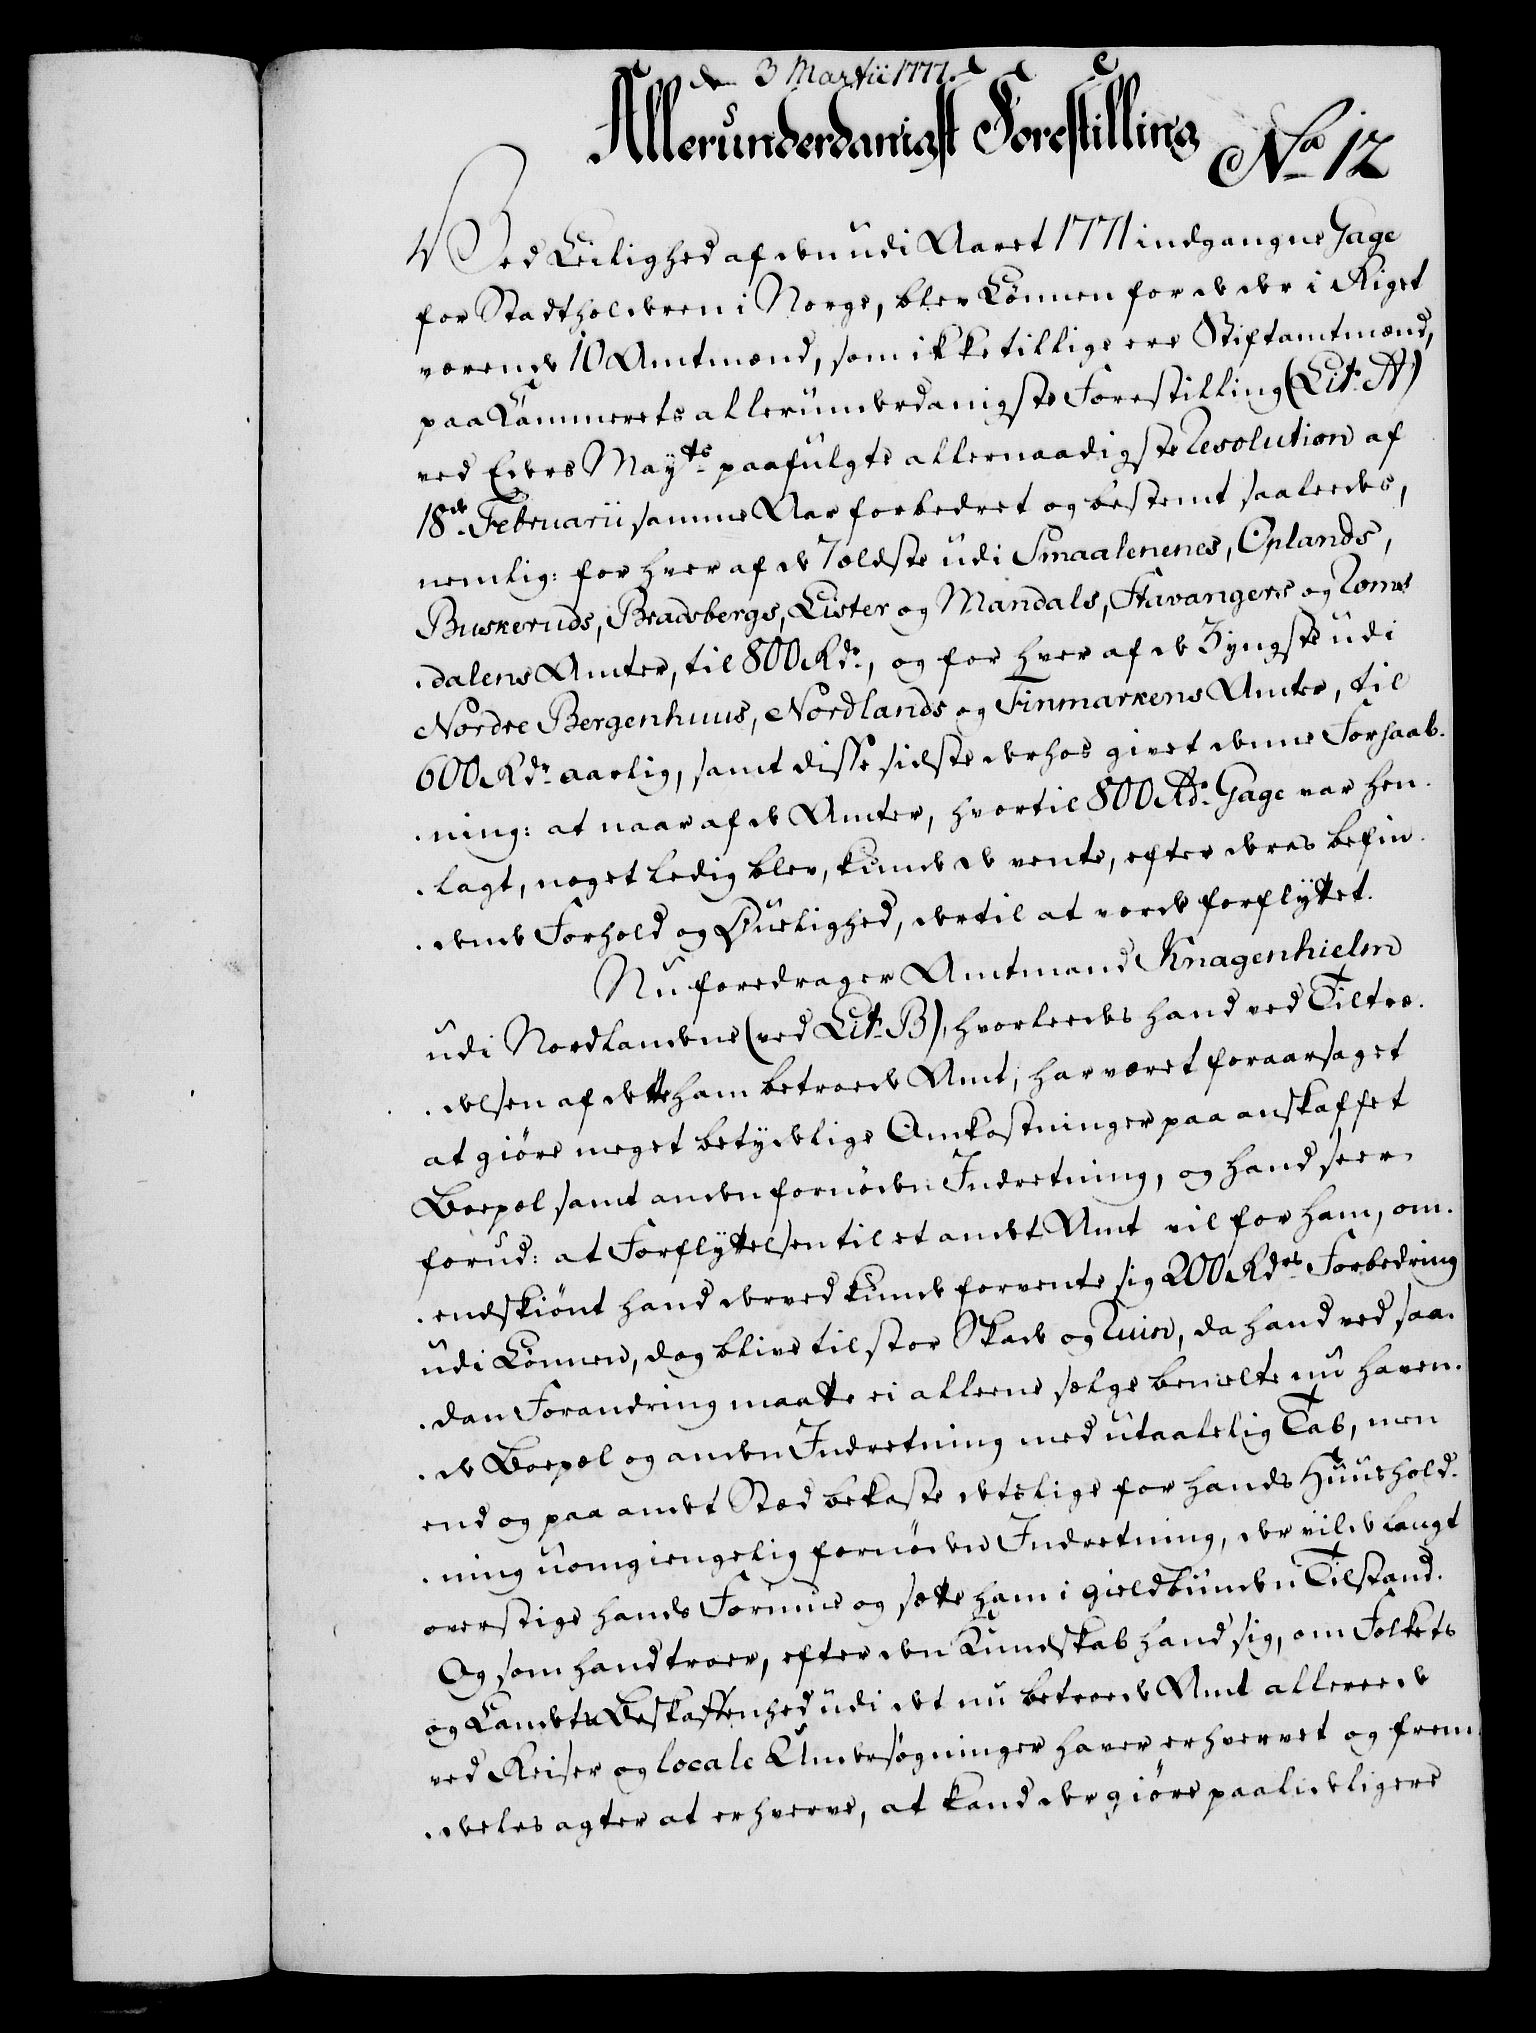 d. 3 Martii 1777.
Allerunderdanigst Forestilling
No 12
Ved Leilighed af den udi Aaret 1771 indgangne Gage
for Stadtholderen i Norge, blev Lönnen for de der i Riget
værende 10 Amtmænd, som ikke tillige ere Stiftamtmænd,
paa Kammerets allerunderdanigste Forestilling (Lit. A)
ved Eders Mayts paafulgte allernaadigste Resolution af
18de Februarii samme Aar forbedret og bestemt saaledes,
nemlig: for hver af de 7 ældste udi Smaalenenes, Oplands,
Buskeruds, Bradsbergs, Lister og Mandals, Stavangers og Roms-
dalens Amter, til 800 Rdr., og for hver af de 3 yngste udi
Nordre Bergenhuus, Nordlands og Finmarkens Amter, til
600 Rdr. aarlig, samt disse sidste derhos givet denne Forhaab-
ning: at naar af de Amter, hvortil 800 Rdr. Gage var hen-
lagt, noget ledig blev, kunde de vente, efter deres befin-
dende Forhold og Duelighed, dertil at vorde forflyttet.
Nu foredrager Amtmand Knagenhielm
udi Nordlandene (ved Lit. B), hvorledes hand ved Tiltræ-
delsen af dette ham betroede Amt, har været foraarsaget
at giöre meget betydelige Omkostninger paa anskaffet
Boepæl samt anden fornöden Indretning, og hand seer
forud: at Forflyttelsen til et andet Amt vil for ham, om-
endskiönt hand derved kunde forvente sig 200 Rdrs Forbedring
udi Lönnen, dog blive til stor Skade og Ruin, da hand ved saa-
dan Forandring maatte ei alleene sælge bemelte nu haven-
de Boepæl og anden Indretning med utaalelig Tab, men
end og paa andet Stæd bekoste deslige for hands Huushold-
ning uomgiengelig fornöden Indretning, der vilde langt
overstige hands Formue og sætte ham i gieldbunden Tilstand.
Og som hand troer, efter den Kundskab hand sig, om Folkets
og Landets Beskaffenhed udi det nu betroede Amt allereede
ved Reiser og locale Undersögninger haver erhvervet og frem-
deeles agter at erhverve, at kand der giöre paalideligere